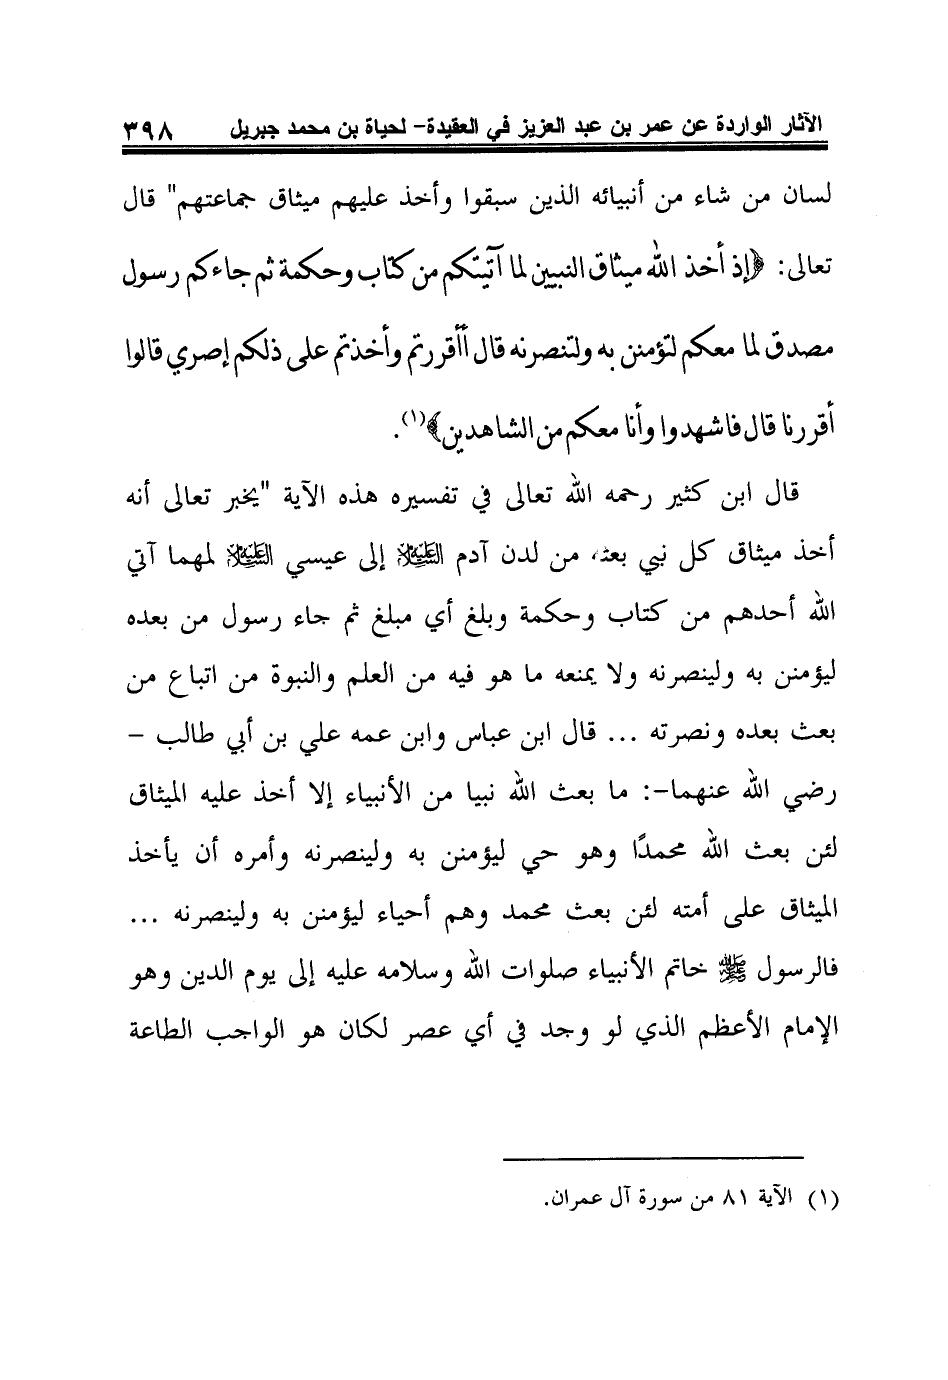 الآثار الواردة عن عمر بن عبد العزيز في العقيدة- لحياة بن محمد جبريل ٣٩٨
لسان من شاء من أنبيائه الذين سبقوا وأخذ عليهم ميثاق جماعتهم" قال
تعالى: ﴿إذ أخذ الله ميثاق النبيين لما آتيتكم من كتاب وحكمة ثم جاءكم رسول
مصدق لما معكم لتؤمنن به ولتنصرنه قال أأقررتم وأخذتم على ذلكم إصري قالوا
أقررنا قال فاشهدوا وأنا معكم من الشاهدين﴾(١).
قال ابن كثير رحمه الله تعالى في تفسيره هذه الآية "يخبر تعالى أنه
أخذ ميثاق كل نبي بعثه من لدن آدم العليه السلام إلى عيسي العليه السلام لمهما آتي
الله أحدهم من كتاب وحكمة وبلغ أي مبلغ ثم جاء رسول من بعده
ليؤمنن به ولينصرنه ولا يمنعه ما هو فيه من العلم والنبوة من اتباع من
بعث بعده ونصرته ... قال ابن عباس وابن عمه علي بن أبي طالب -
رضي الله عنهما-: ما بعث الله نبيا من الأنبياء إلا أخذ عليه الميثاق
لئن بعث الله محمدًا وهو حي ليؤمنن به ولينصرنه وأمره أن يأخذ
الميثاق على أمته لئن بعث محمد وهم أحياء ليؤمنن به ولينصرنه ...
فالرسول ﷺ خاتم الأنبياء صلوات الله وسلامه عليه إلى يوم الدين وهو
الإمام الأعظم الذي لو وجد في أي عصر لكان هو الواجب الطاعة
(١) الآية ٨١ من سورة آل عمران.